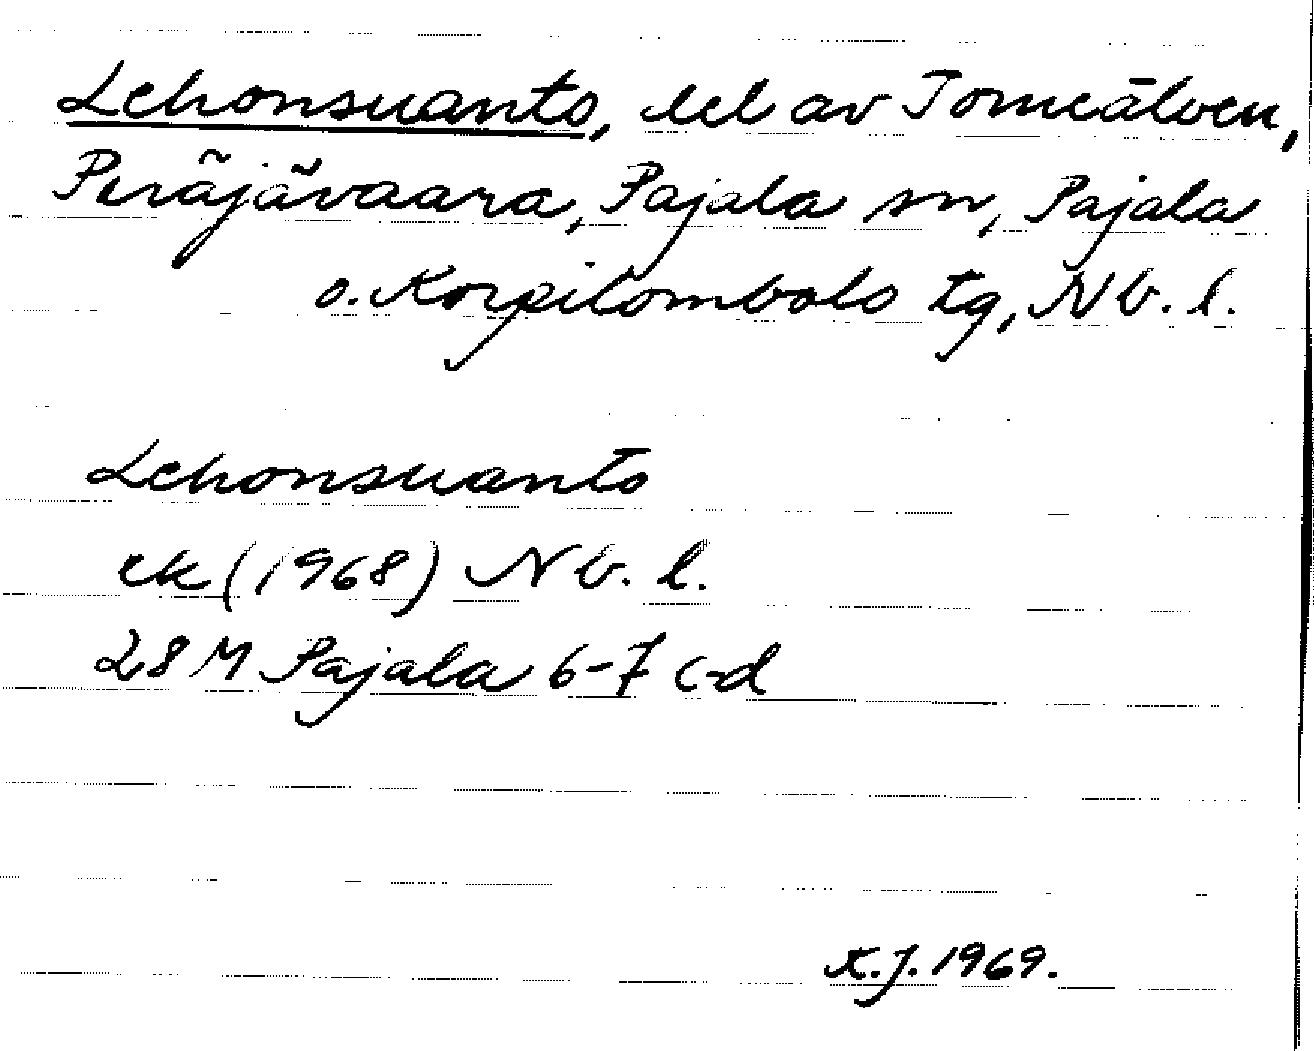 Lehonsuanto, del av Torneälven,
Peräjävaara, Pajala sn, Pajala
o. Korpilombolo tg, Nb. l.
Lehonsuanto
ek (1968) Nb. l.
28 M Pajala 6-7 c-d
K.J. 1969.